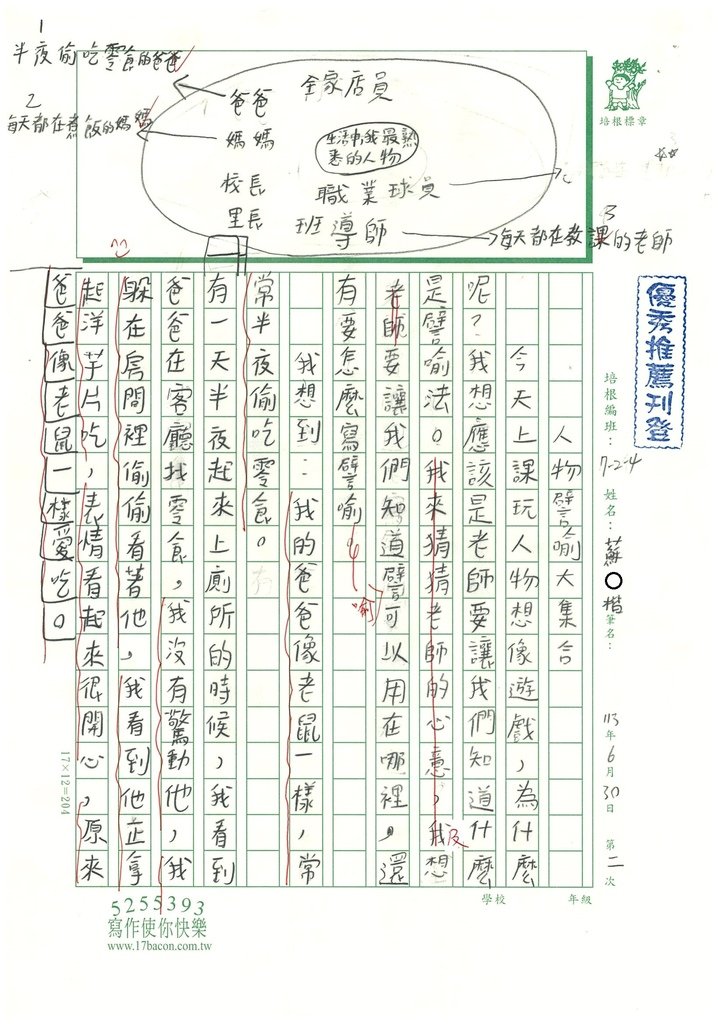 1
半夜偷吃零食的爸爸
2
每天都在煮飯的媽媽
爸爸
媽媽
校長
里長
全家店員
生活中我最熟
悉的人物
職業球員
班導師
3
每天都在教課的老師
培根標章
優秀推薦刊登
培根編班：7-2-4 姓名：蘇 楷 筆名：
113年6月30日 第二次
學校 年級
人物譬喻大集合
今天上課玩人物想像遊戲，為什麼
呢？我想應該是老師要讓我們知道什麼
是譬喻法。我來猜猜老師的心意，我想
及
老師要讓我們知道譬可以用在哪裡，還
喻
有要怎麼寫譬喻。
我想到：我的爸爸像老鼠一樣，常
常半夜偷吃零食。
有一天半夜起來上廁所的時候，我看到
爸爸在客廳找零食，我沒有驚動他，我
躲在房間裡偷偷看著他，我看到他正拿
起洋芋片吃，表情看起來很開心，原來
爸爸像老鼠一樣愛吃。
17×12=204
5255393
寫作使你快樂
www.17bacon.com.tw